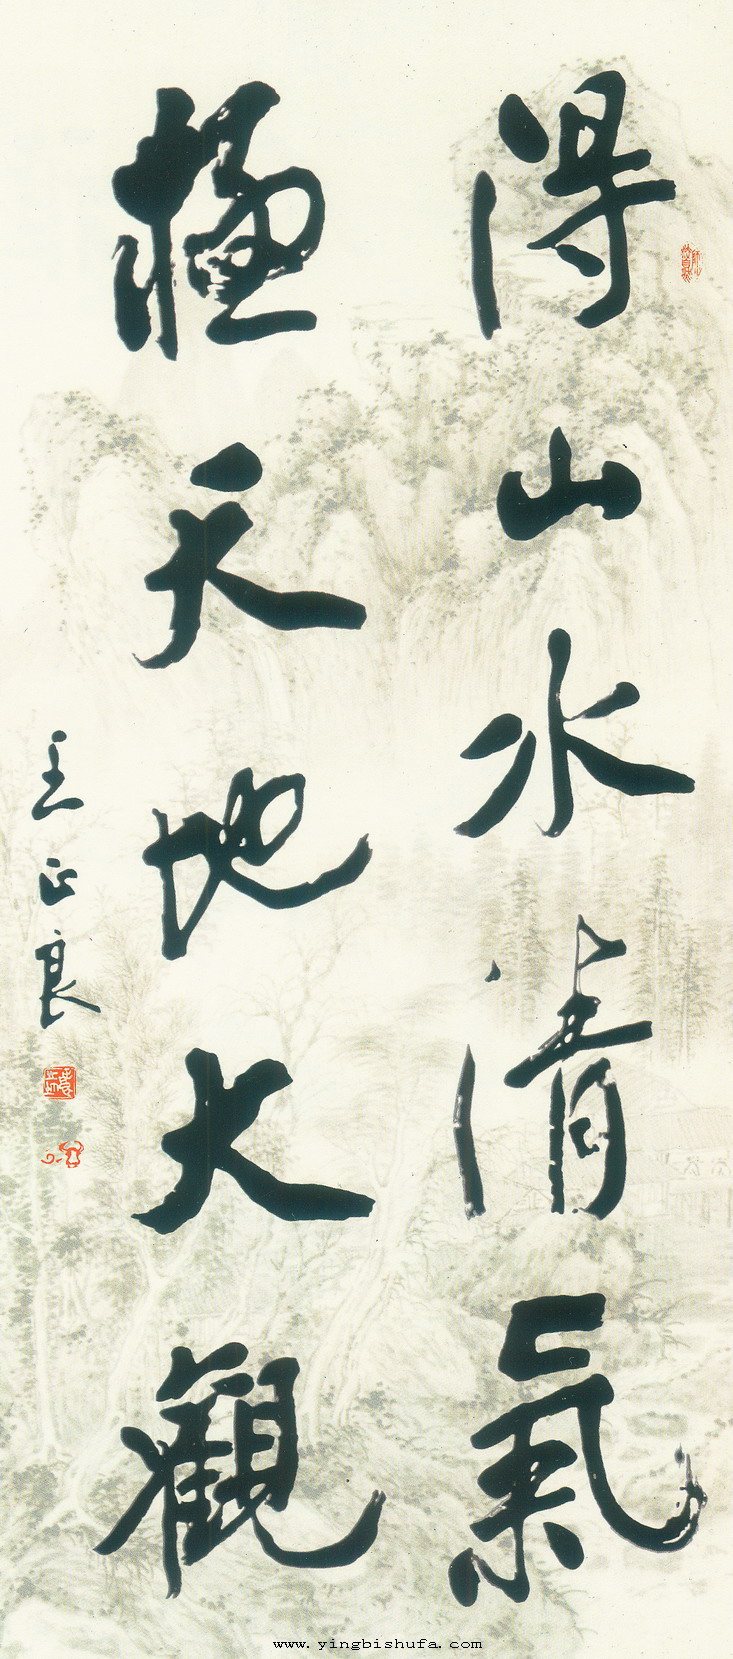 得山水清氣
極天地大觀
王正良
www.yingbishufa.com